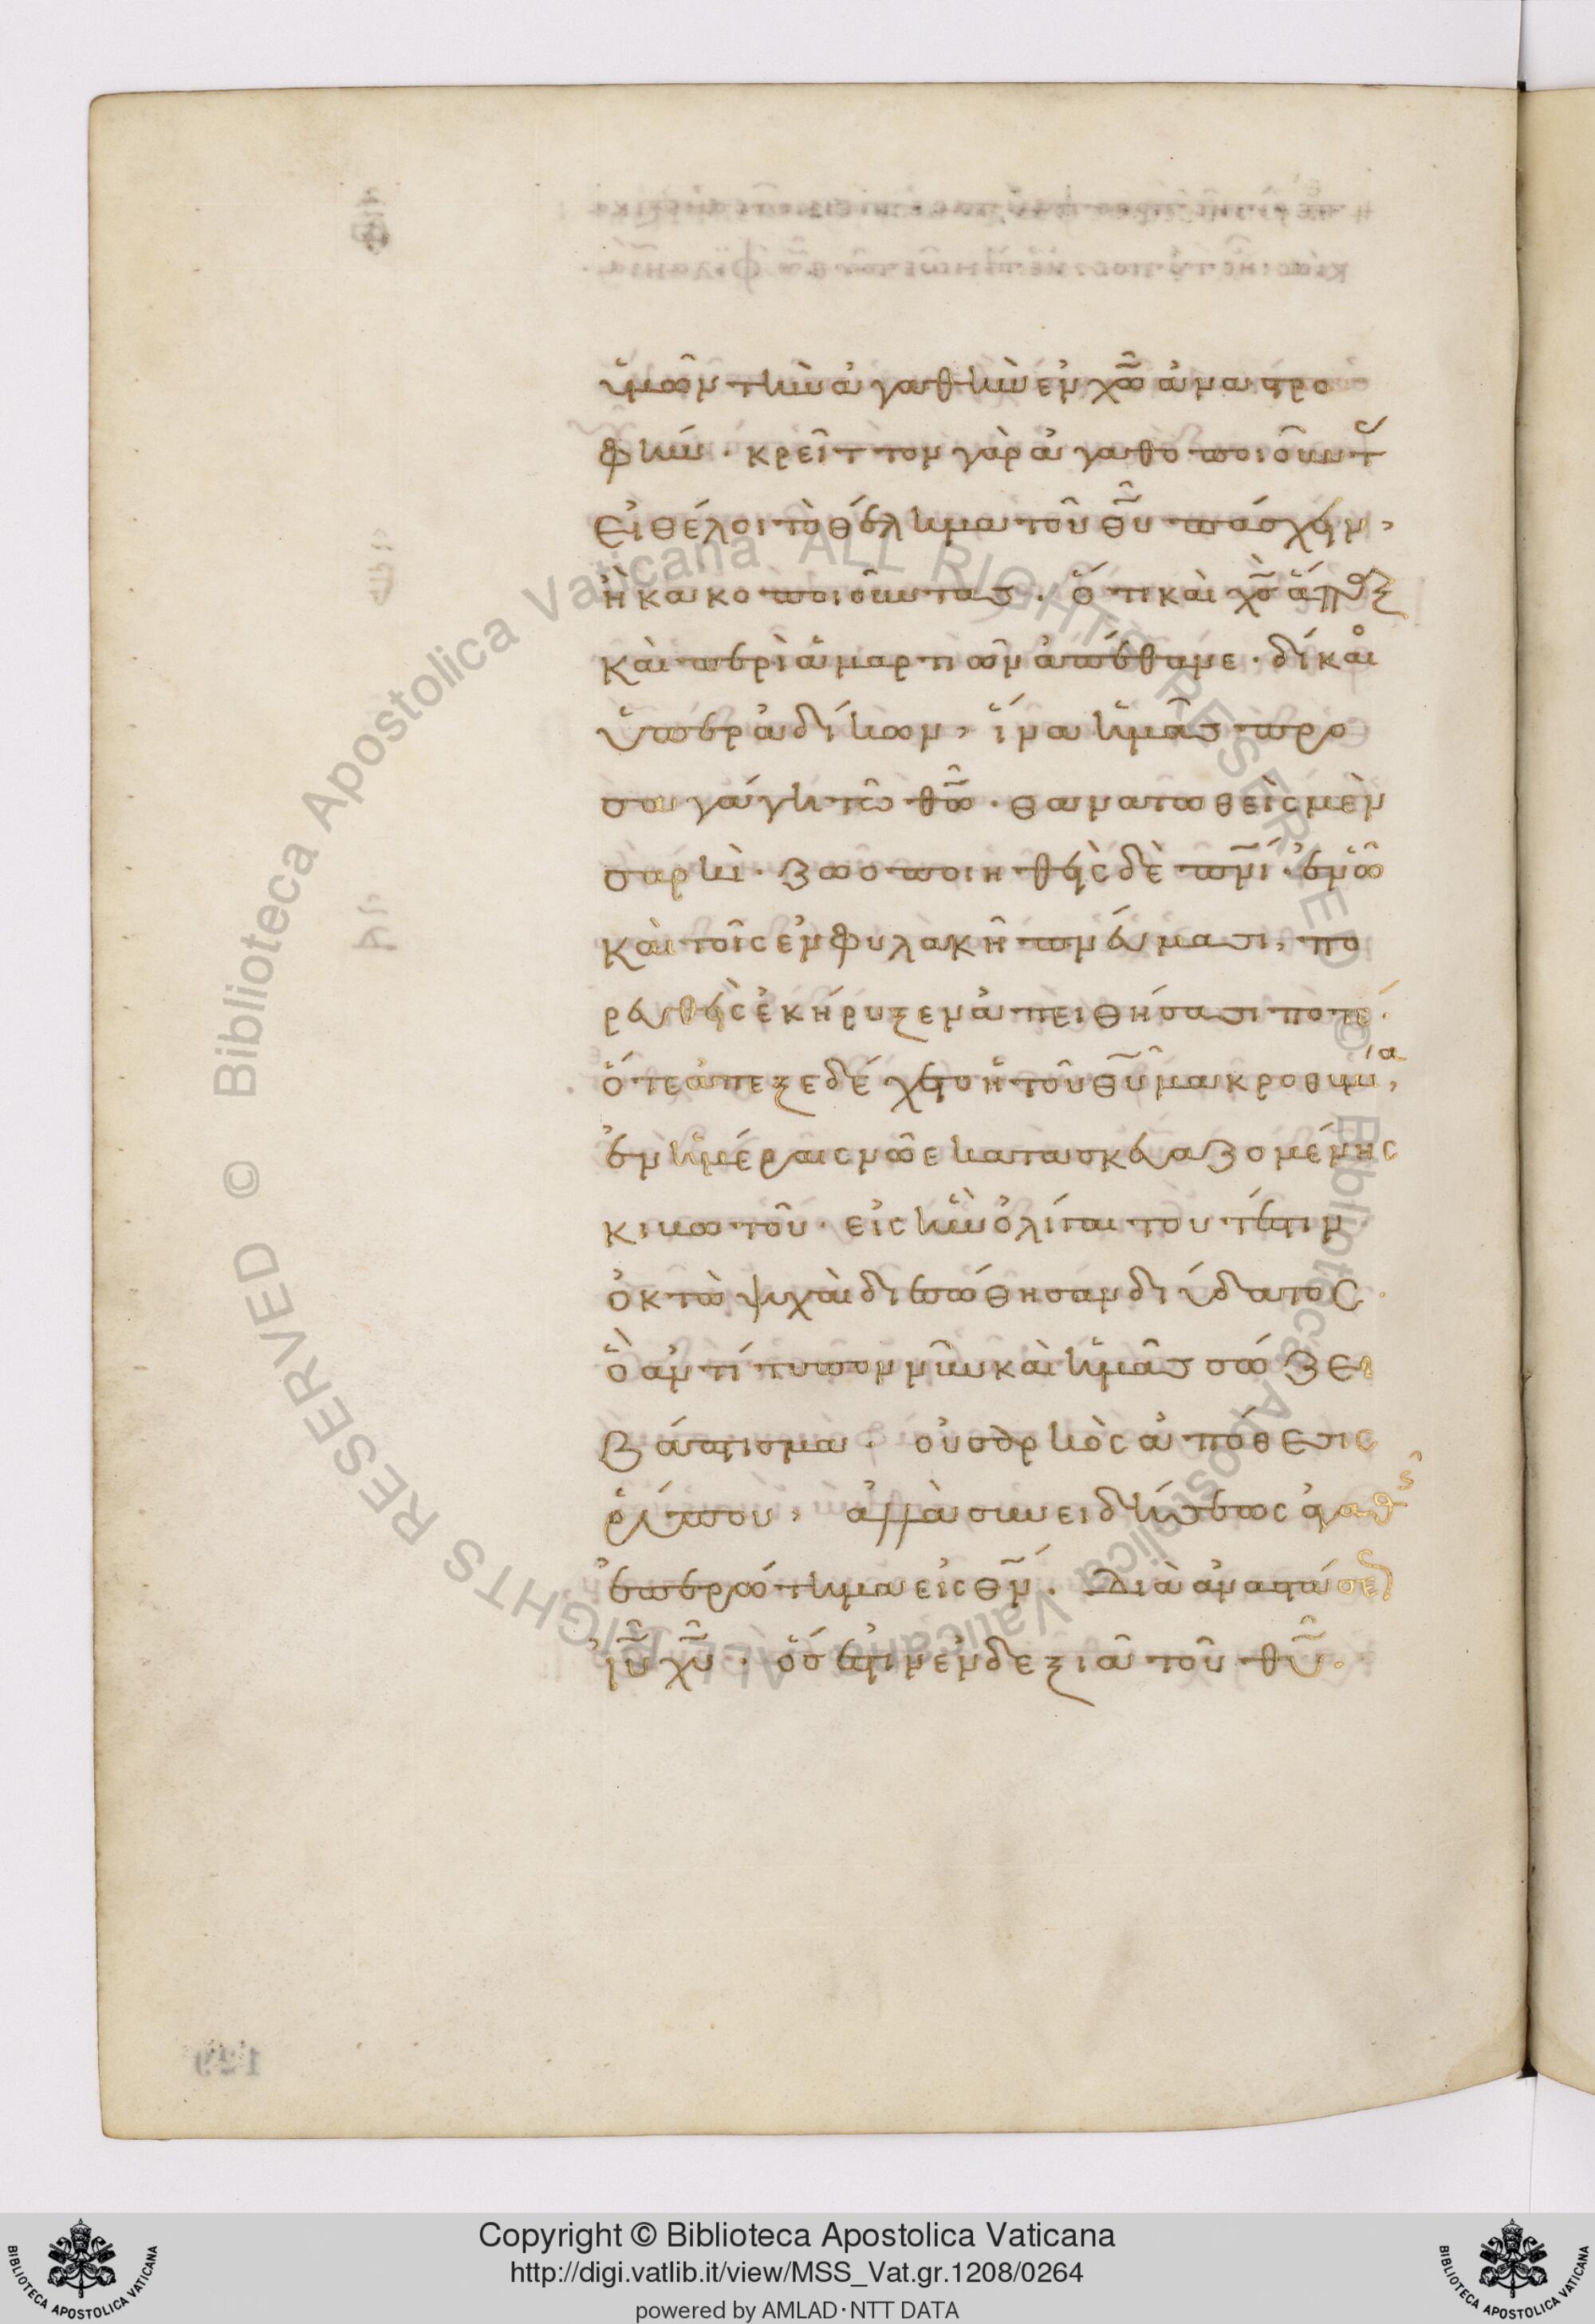 ὑμῶν τὴν ἀγαθὴν ἐν χῶ ἀναστρο
φήν · κρεῖττον γὰρ ἀγαθοποιοῦντ
εἰ θέλοι τὸ θέλημα τοῦ θῦ πάσχειν,
ἢ κακοποιοῦντας · ὅτι καὶ χς ἅπαξ
καὶ περὶ ἁμαρτιῶν ἀπέθανε · δίκαι
ὑπὲρ ἀδίκων, ἵνα ἡμᾶς προ
σαγάγη τῶ θῶ · θανατωθεὶς μὲν
σαρκὶ · ζωοποιηθεὶς δὲ πνί · ἐν ῶ
καὶ τοῖς ἐν φυλακῆ πνεύμασι, πο
ρευθεὶς ἐκήρυξεν ἀπειθήσασι ποτέ ·
ὅτε ἀπεξεδέχετο ἡ τοῦ θῦ μακροθυμία,
ἐν ἡμέραις νῶε κατασκευαζομένης
κιβωτοῦ · εἰς ἣν ὀλίγαι τουτέστιν
ὀκτὼ ψυχαὶ διεσώθησαν δι ὕδατος ·
ὃ ἀντίτυπον νῦν καὶ ἡμᾶς σώζει
βάπτισμα · οὐ σαρκὸς ἀπόθεσις
ῥύπου, ἀλλὰ συνειδήσεως ἀγαθῆς
ἐπερώτημα εἰς θν · διὰ ἀναστάσε
ιῦ χῦ · ὅς ἐστιν ἐν δεξιᾶ τοῦ θῦ ·
Copyright © Biblioteca Apostolica Vaticana
http://digi.vatlib.it/view/MSS_Vat.gr.1208/0264
powered by AMLAD·NTT DATA